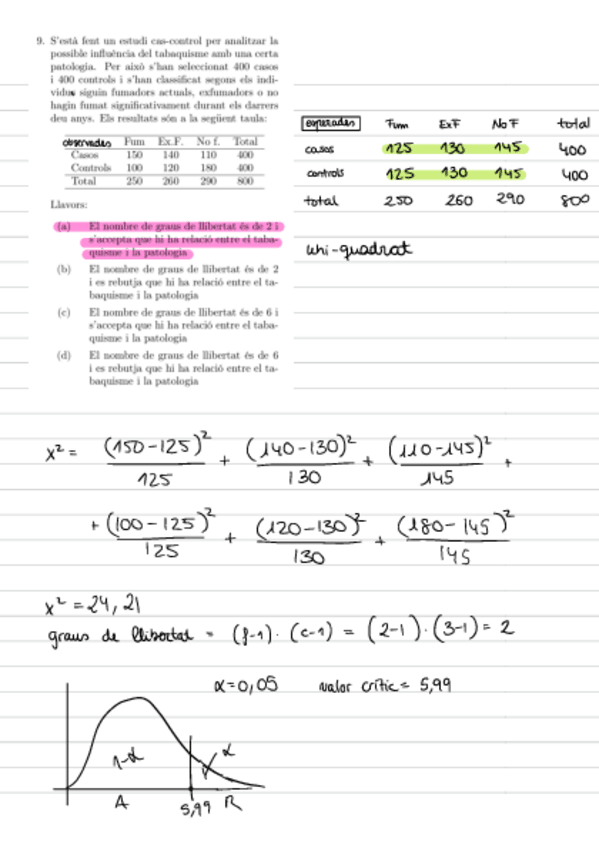 9. S'està fent un estudi cas-control per analitzar la
possible influència del tabaquisme amb una certa
patologia. Per això s'han seleccionat 400 casos
i 400 controls i s'han classificat segons els indi-
vidus siguin fumadors actuals, exfumadors o no
hagin fumat significativament durant els darrers
deu anys. Els resultats són a la següent taula:
observades Fum Ex.F. No f. Total
Casos 150 140 110 400
Controls 100 120 180 400
Total 250 260 290 800
Llavors:
(a) El nombre de graus de llibertat és de 2 i
s'accepta que hi ha relació entre el taba-
quisme i la patologia
(b) El nombre de graus de llibertat és de 2
i es rebutja que hi ha relació entre el ta-
baquisme i la patologia
(c) El nombre de graus de llibertat és de 6 i
s'accepta que hi ha relació entre el taba-
quisme i la patologia
(d) El nombre de graus de llibertat és de 6
i es rebutja que hi ha relació entre el ta-
baquisme i la patologia
esperades Fum ExF No F total
casos 125 130 145 400
controls 125 130 145 400
total 250 260 290 800
khi-quadrat
x² = (150-125)²/125 + (140-130)²/130 + (110-145)²/145 +
+ (100-125)²/125 + (120-130)²/130 + (180-145)²/145
x² = 24,21
graus de llibertat = (f-1)·(c-1) = (2-1)·(3-1) = 2
α=0,05 valor crític = 5,99
1-α α
A 5,99 R